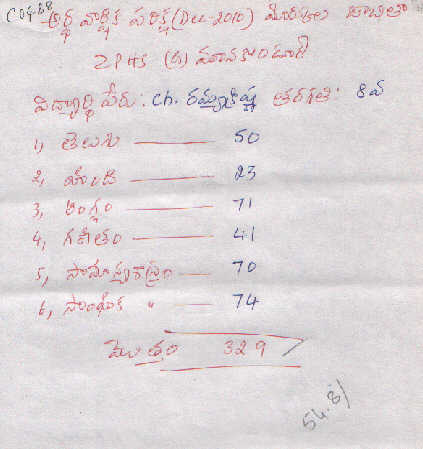 C04-68
అర్ధ వార్షిక పరీక్ష (Dec-2010) మార్కుల జాబితా
ZPHS (B) మానకొండూర్
విద్యార్థి పేరు: Ch. రమ్యకృష్ణ తరగతి: 8వ
1, తెలుగు —— 50
2, హింది —— 23
3, ఆంగ్లం —— 71
4, గణితం —— 41
5, సామాన్యశాస్త్రం —— 70
6, సాంఘీక " —— 74
మొత్తం 329/
54.8/